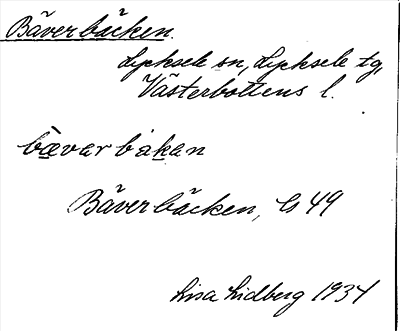 Bäverbäcken.
Lycksele sn, Lycksele tg,
Västerbottens l.
bævarbakan
Bäverbäcken, Gs 49
Lisa Lidberg 1934